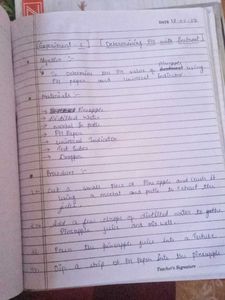 DATE
Experiment 1 Determining PH with
Objective :-
To Determine the PH value of pineapple using
PH paper and universal Indicator.
Materials :-
→ Pineapple
→ distilled water
→ mortal & pestle
→ PH Paper
→ universal Indicator
→ Test tubes
→ Dropper
Procedure :-
Cut a small piece of Pineapple and crush it
using a mortal and pestle to extract the
juice.
Add a few drops of distilled water to the
Pineapple juice and mix well.
Pour the pineapple juice into a
Dip a strip of PH Paper into the pineapple
Teacher's Signature